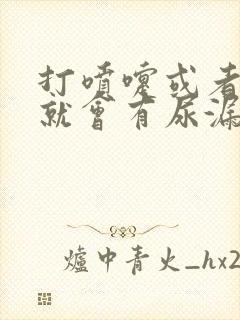 打噴嚏或者
就會有尿漏
爐中青火_hx2